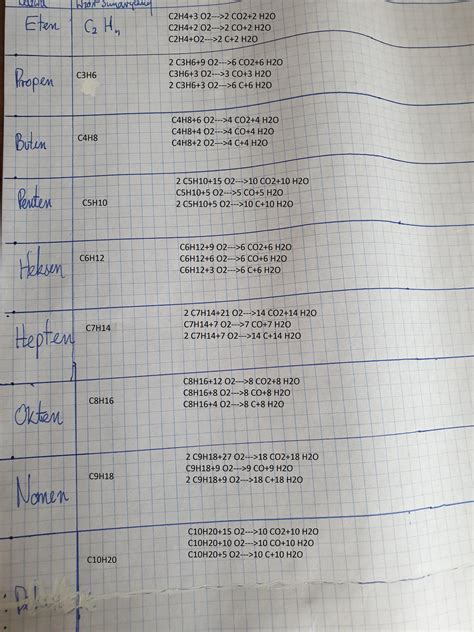 Wzór Sumaryczny
Eten
C2 H4
C2H4+3 O2--->2 CO2+2 H2O
C2H4+2 O2--->2 CO+2 H2O
C2H4+O2--->2 C+2 H2O
Propen
C3H6
2 C3H6+9 O2--->6 CO2+6 H2O
C3H6+3 O2--->3 CO+3 H2O
2 C3H6+3 O2--->6 C+6 H2O
Buten
C4H8
C4H8+6 O2--->4 CO2+4 H2O
C4H8+4 O2--->4 CO+4 H2O
C4H8+2 O2--->4 C+4 H2O
Penten
C5H10
2 C5H10+15 O2--->10 CO2+10 H2O
C5H10+5 O2--->5 CO+5 H2O
2 C5H10+5 O2--->10 C+10 H2O
Heksen
C6H12
C6H12+9 O2--->6 CO2+6 H2O
C6H12+6 O2--->6 CO+6 H2O
C6H12+3 O2--->6 C+6 H2O
Hepten
C7H14
2 C7H14+21 O2--->14 CO2+14 H2O
C7H14+7 O2--->7 CO+7 H2O
2 C7H14+7 O2--->14 C+14 H2O
Okten
C8H16
C8H16+12 O2--->8 CO2+8 H2O
C8H16+8 O2--->8 CO+8 H2O
C8H16+4 O2--->8 C+8 H2O
Nonen
C9H18
2 C9H18+27 O2--->18 CO2+18 H2O
C9H18+9 O2--->9 CO+9 H2O
2 C9H18+9 O2--->18 C+18 H2O
C10H20
C10H20+15 O2--->10 CO2+10 H2O
C10H20+10 O2--->10 CO+10 H2O
C10H20+5 O2--->10 C+10 H2O